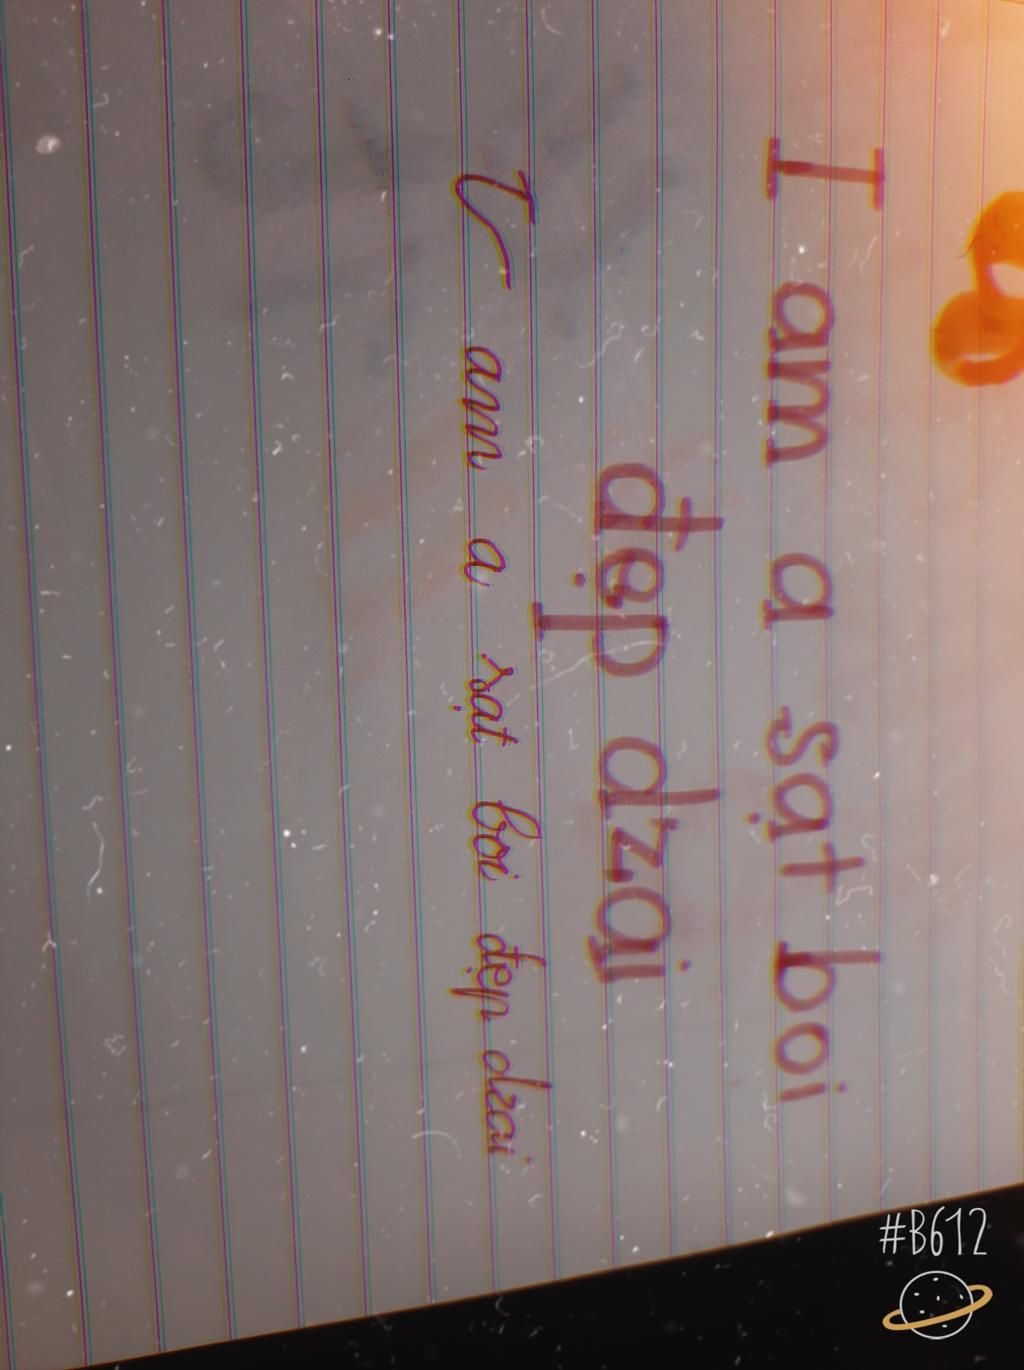 I am a sạt boi
đẹp dzai
I am a sạt boi đẹp dzai
#B612